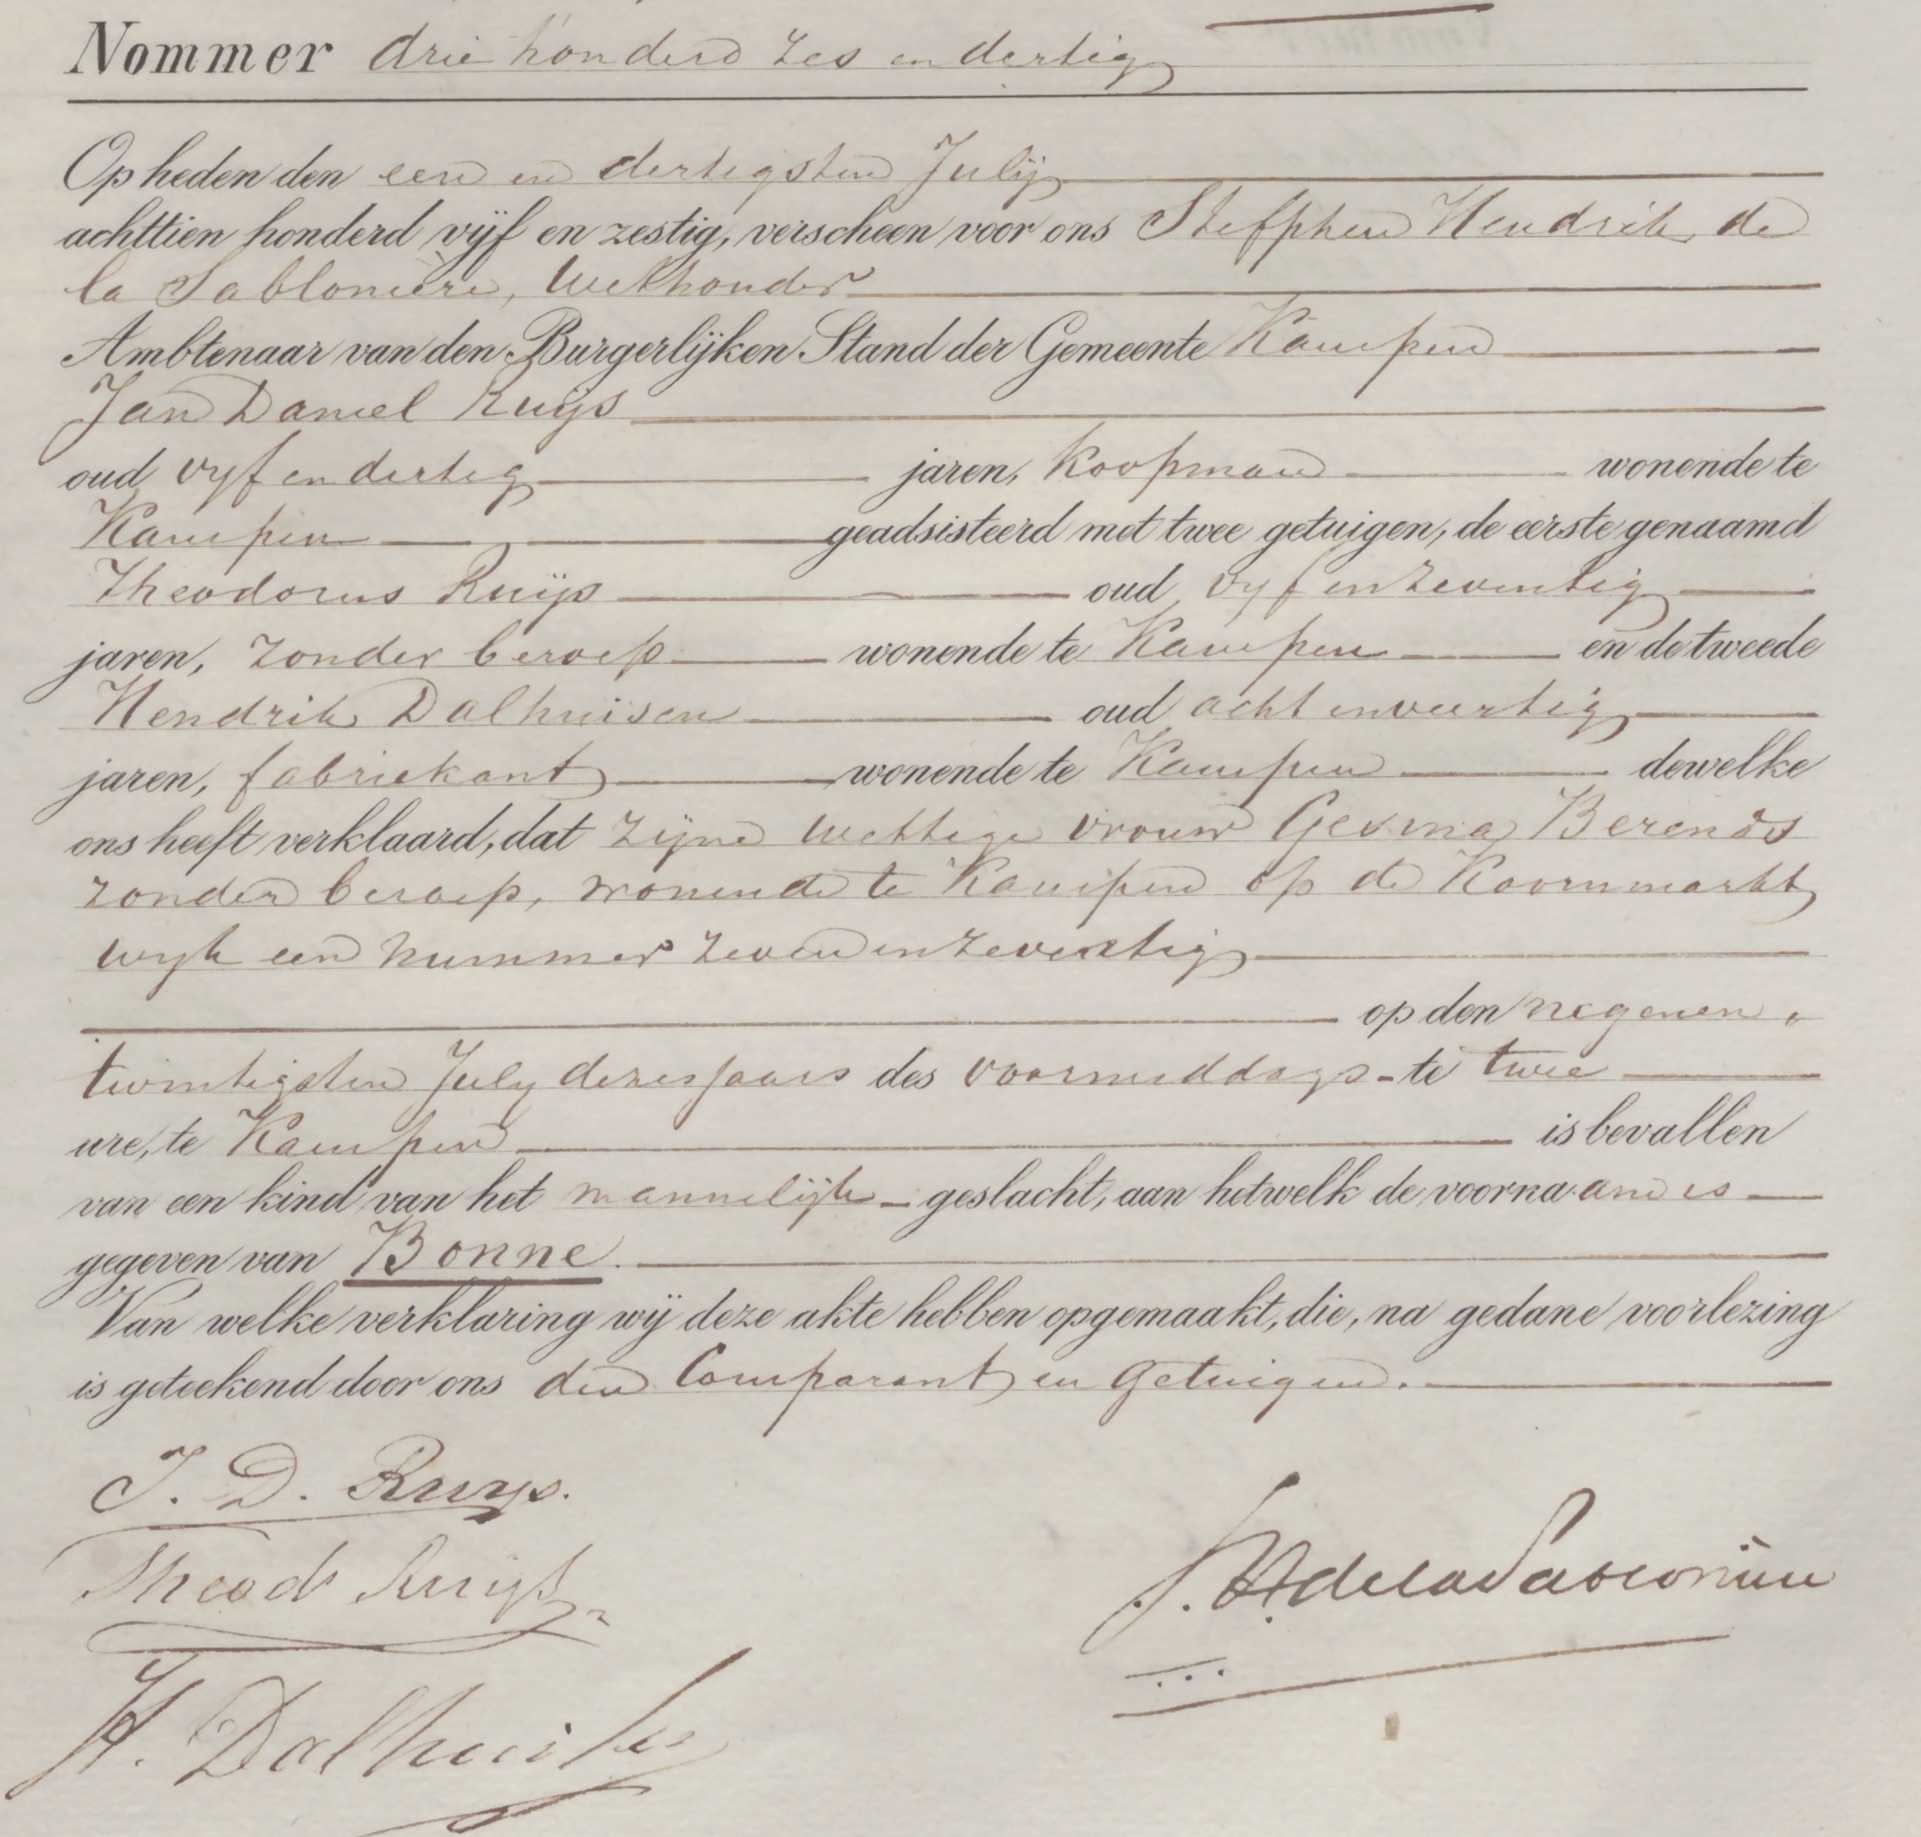 Nommer drie honderd zes en dertig
Op heden den een en dertigsten Julij
achttien honderd vijf en zestig, verscheen voor ons Stefphen Hendrik de
la Sablonière, Wethouder
Ambtenaar van den Burgerlijken Stand der Gemeente Kampen
Jan Daniel Ruijs
oud vyf en dertig jaren, Koopman wonende te
Kampen geadsisteerd met twee getuigen, de eerste genaamd
Theodorus Ruijs oud vyf en zeventig
jaren, zonder beroep wonende te Kampen en de tweede
Hendrik Dalhuisen oud acht en veertig
jaren, fabriekant wonende te Kampen dewelke
ons heeft verklaard, dat zijne wettige vrouw Gesina Berends
zonder beroep, wonende te Kampen op de Koornmarkt
wyk een nummer zeven en zeventig
op den negenen
twintigsten July dezes jaars des voormiddags te twee
ure, te Kampen is bevallen
van een kind van het mannelijk geslacht, aan hetwelk de voornaam is
gegeven van Bonne.
Van welke verklaring wij deze akte hebben opgemaakt, die, na gedane voorlezing
is geteekend door ons den Comparant en Getuigen.
J. D. Ruys.
Theod Ruijs
S. H. de la Sablonière
H. Dalhuisen